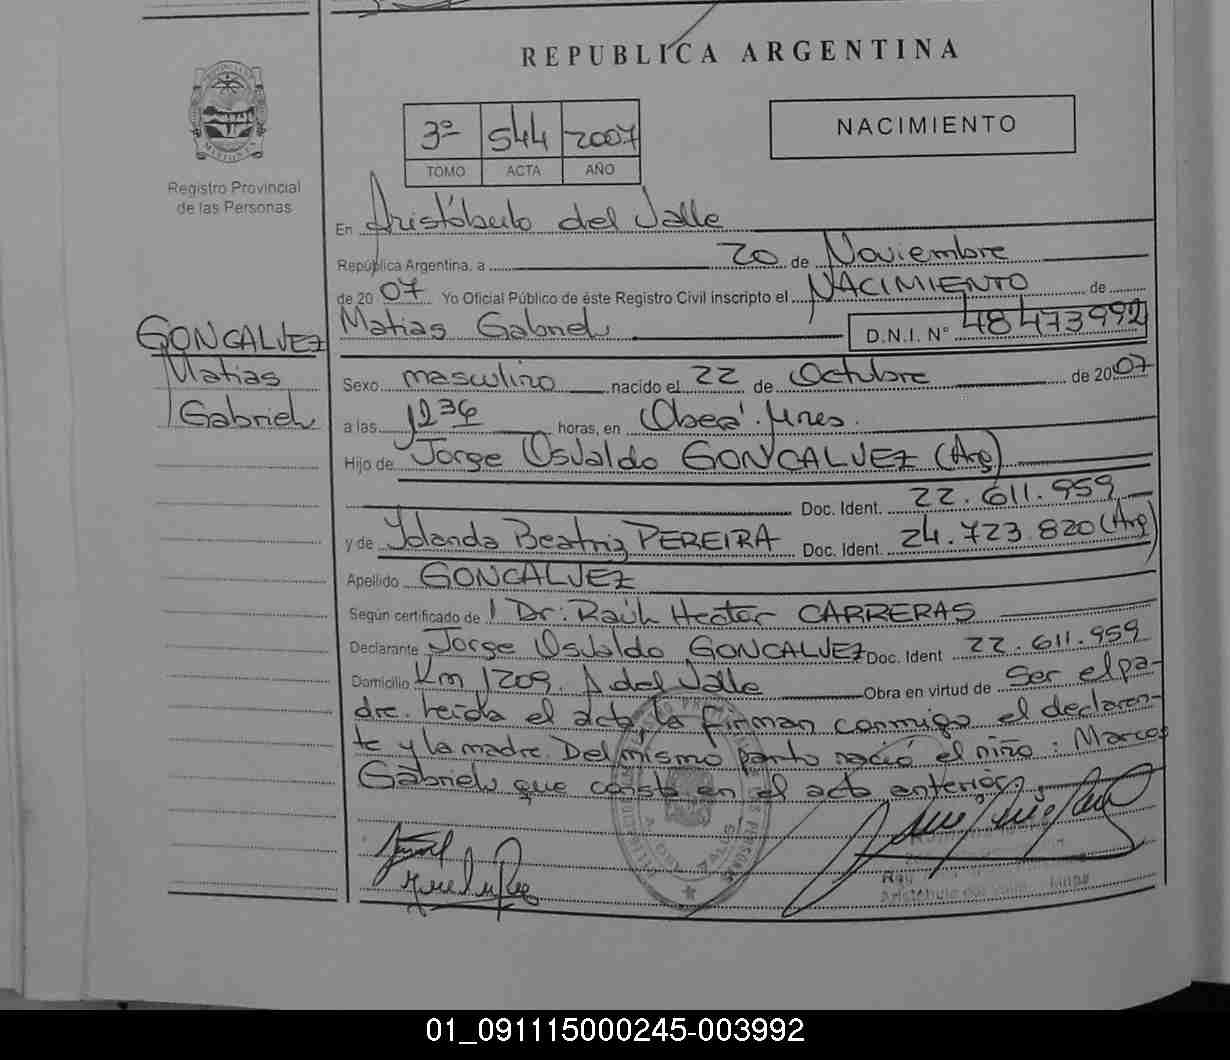 REPUBLICA ARGENTINA
MISIONES
Registro Provincial
de las Personas
3º 544 2007
TOMO ACTA AÑO
NACIMIENTO
En Aristóbulo del Valle
República Argentina, a 20 de Noviembre
de 2007 Yo Oficial Público de éste Registro Civil inscripto el NACIMIENTO de
Matias Gabriel D.N.I. Nº 48473992
GONCALVEZ
Matias
Gabriel
Sexo masculino nacido el 22 de Octubre de 2007
a las 1236 horas, en Oberá. Mnes.
Hijo de Jorge Osvaldo GONCALVEZ (Arg)
Doc. Ident. 22.611.959
y de Yolanda Beatriz PEREIRA Doc. Ident. 24.723.820 (Arg)
Apellido GONCALVEZ
Según certificado de Dr: Raúl Hector CARRERAS
Declarante Jorge Osvaldo GONCALVEZ Doc. Ident 22.611.959
Domicilio Km 1209. A del Valle Obra en virtud de Ser el pa-
dre. leida el acta, la firman conmigo el declaran-
te y la madre. Del mismo parto nació el niño: Marcos
Gabriel que consta en el acta anterior.
01_091115000245-003992